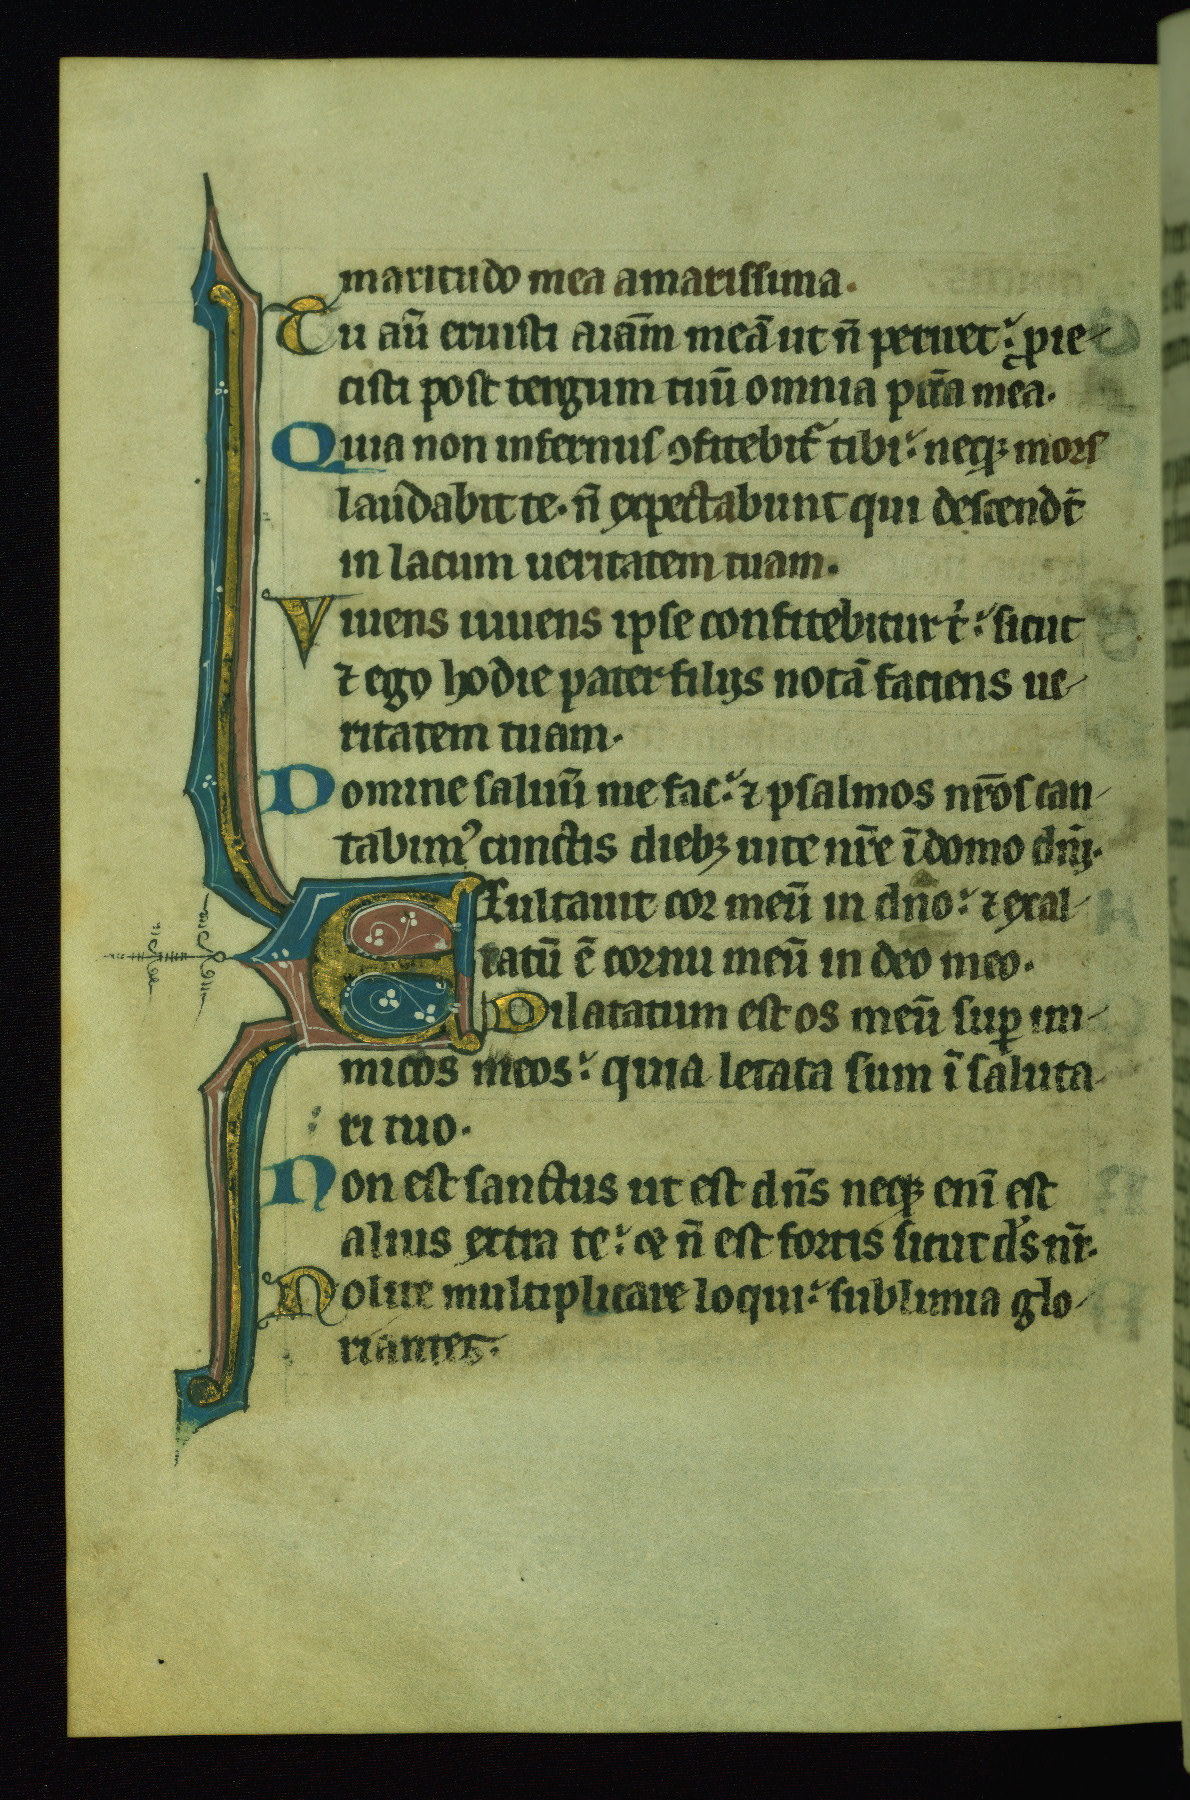 maritudo mea amarissima.
Tu aū eruisti aīam meā ut n̄ periret: proie-
cisti post tergum tuū omnia pccā mea.
Quia non infernus ꝯfitebit᷑ tibi: neqꝫ mors
laudabit te. n̄ expectabunt qui descendt̄
in lacum ueritatem tuam.
Viuens uiuens ipse confitebitur t̍: sicut
⁊ ego hodie pater filijs notā faciens ue-
ritatem tuam.
Domine saluū me fac: ⁊ psalmos nr̄os can-
tabimꝰ cunctis diebꝫ uite nr̄e ī domo dn̄i.
Exultauit cor meū in dn̄o: ⁊ exal-
tatū ē cornu meū in deo meo.
Dilatatum est os meū suꝑ ini-
micos meos: quia letata sum ī saluta-
ri tuo.
Non est sanctus ut est dn̄s neqꝫ enī est
alius extra te: et n̄ est fortis sicut ds̄ nr̄.
Nolite multiplicare loqui: sublimia glo-
riantes.